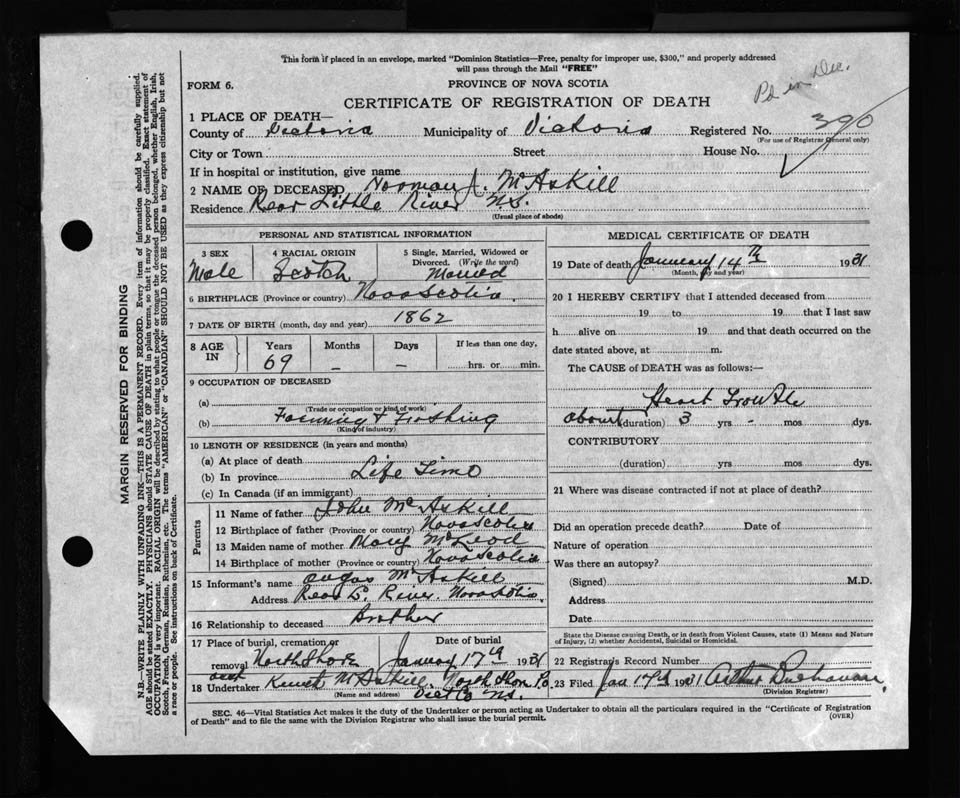 This form if placed in an envelope, marked "Dominion Statistics—Free, penalty for improper use, $300," and properly addressed
will pass through the Mail "FREE"
Pd in Dec.
FORM 6.
PROVINCE OF NOVA SCOTIA
CERTIFICATE OF REGISTRATION OF DEATH
1 PLACE OF DEATH—
County of Victoria Municipality of Victoria Registered No. 390
(For use of Registrar General only)
City or Town Street House No.
If in hospital or institution, give name
2 NAME OF DECEASED Norman J. McAskill
Residence Rear Little River N.S.
(Usual place of abode)
PERSONAL AND STATISTICAL INFORMATION
3 SEX Male
4 RACIAL ORIGIN Scotch
5 Single, Married, Widowed or
Divorced. (Write the word) Married
6 BIRTHPLACE (Province or country) Nova Scotia.
7 DATE OF BIRTH (month, day and year) 1862
8 AGE IN
Years Months Days If less than one day,
69 – – hrs. or min.
9 OCCUPATION OF DECEASED
(a)
(Trade or occupation or kind of work)
(b) Farming & Fishing
(Kind of industry)
10 LENGTH OF RESIDENCE (in years and months)
(a) At place of death
(b) In province Life Time
(c) In Canada (if an immigrant)
Parents
11 Name of father John McAskill
12 Birthplace of father (Province or country) Nova Scotia
13 Maiden name of mother Mary McLeod
14 Birthplace of mother (Province or country) Nova Scotia
15 Informant's name Angus McAskill
Address Rear L. River Nova Scotia.
16 Relationship to deceased Brother
17 Place of burial, cremation or Date of burial
removal North Shore January 17th 1931
18 Undertaker McAskill, North Shore
(Name and address) Victo N.S.
MEDICAL CERTIFICATE OF DEATH
19 Date of death January 14th 1931
(Month, day and year)
20 I HEREBY CERTIFY that I attended deceased from
19 to 19 that I last saw
h alive on 19 and that death occurred on the
date stated above, at m.
The CAUSE of DEATH was as follows:—
Heart Trouble
about (duration) 3 yrs - mos dys.
CONTRIBUTORY
(duration) yrs mos dys.
21 Where was disease contracted if not at place of death?
Did an operation precede death? Date of
Nature of operation
Was there an autopsy?
(Signed) M.D.
Address
Date
State the Disease causing Death, or in death from Violent Causes, state (1) Means and Nature
of Injury, (2) whether Accidental, Suicidal or Homicidal.
22 Registrar's Record Number
23 Filed Jan 19th 1931 Arthur Buchanan
(Division Registrar)
SEC. 46—Vital Statistics Act makes it the duty of the Undertaker or person acting as Undertaker to obtain all the particulars required in the "Certificate of Registration
of Death" and to file the same with the Division Registrar who shall issue the burial permit.
(OVER)
MARGIN RESERVED FOR BINDING
N.B.—WRITE PLAINLY WITH UNFADING INK—THIS IS A PERMANENT RECORD. Every item of information should be carefully supplied.
AGE should be stated EXACTLY. PHYSICIANS should STATE CAUSE OF DEATH in plain terms, so that it may be properly classified. Exact statement of
OCCUPATION is very important. RACIAL ORIGIN will be described by stating to what people or tongue the deceased person belonged, whether English, Irish,
Scotch, French, German, Russian, Ruthenian, etc. The terms "AMERICAN" or "CANADIAN" SHOULD NOT BE USED as they express citizenship but not
a race or people. See instructions on back of Certificate.